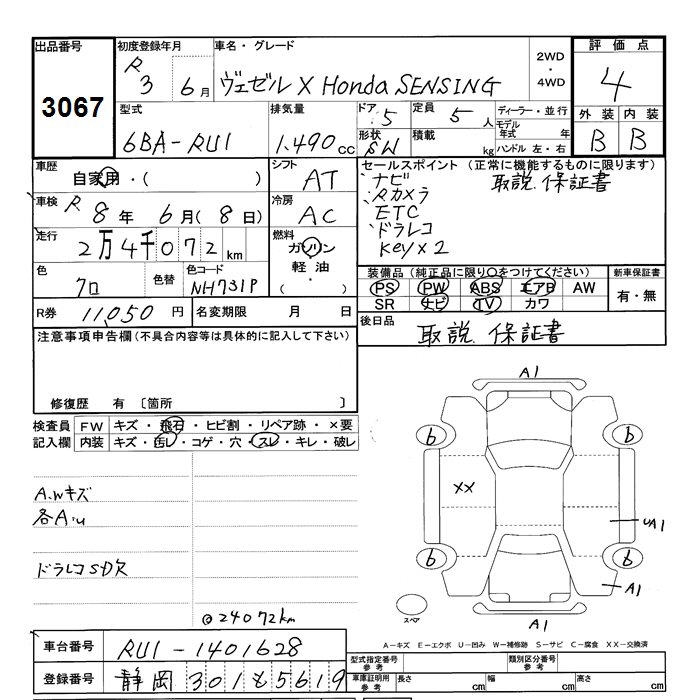 出品番号 初度登録年月 車名・グレード 評価点
3067 R3 6月 ヴェゼル X Honda SENSING 2WD・4WD 4
型式 排気量 ドア 5 定員 5人 ディーラー・並行 外装 内装
6BA-RU1 1.490cc 形状 SW 積載 kg モデル年式 年 ハンドル 左・右 B B
車歴 自家用・( ) シフト AT セールスポイント (正常に機能するものに限ります)
ナビ 取説.保証書
車検 R8年 6月(8日) 冷房 AC Rカメラ
ETC
走行 2万4千072km 燃料 ガソリン 軽油・( ) ドラレコ
Key×2
色 クロ 色替 色コード NH731P
装備品 (純正品に限り○をつけてください) 新車保証書
PS PW ABS エアB AW 有・無
SR ナビ TV カワ
R券 11,050円 名変期限 月 日
後日品 取説 保証書
注意事項申告欄(不具合内容等は具体的に記入して下さい)
修復歴 有 〔箇所 〕
検査員記入欄 FW キズ・飛石・ヒビ割・リペア跡・×要
内装 キズ・汚レ・コゲ・穴・スレ・キレ・破レ
A.Wキズ
各A・U
ドラレコSD欠
@24072km
A1
6 6
XX
UA1
6 6
A1
A1
スペア
A-キズ E-エクボ U-凹み W-補修跡 S-サビ C-腐食 XX-交換済
車台番号 RU1-1401628
登録番号 静岡 301 も 5619
型式指定番号 参考 類別区分番号 参考
車庫証明用 参考 長さ cm 幅 cm 高さ cm